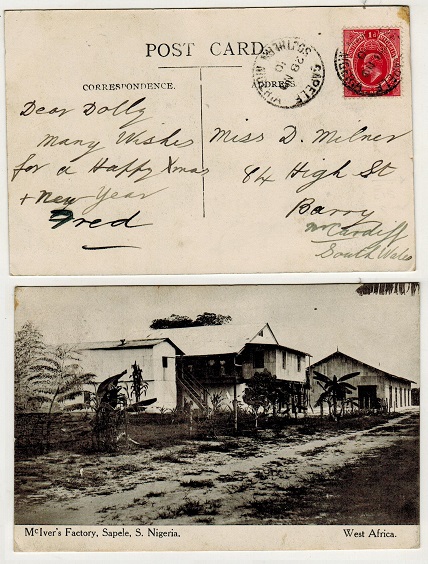 POST CARD.
CORRESPONDENCE.
ADDRESS
SAPELE
SOUTHERN
28
10
1d
Dear Dolly
Many Wishes
for a Happy Xmas
+ New Year
Fred
Miss D. Milner
84 High St
Barry
nr Cardiff
South Wales
McIver's Factory, Sapele, S. Nigeria.
West Africa.